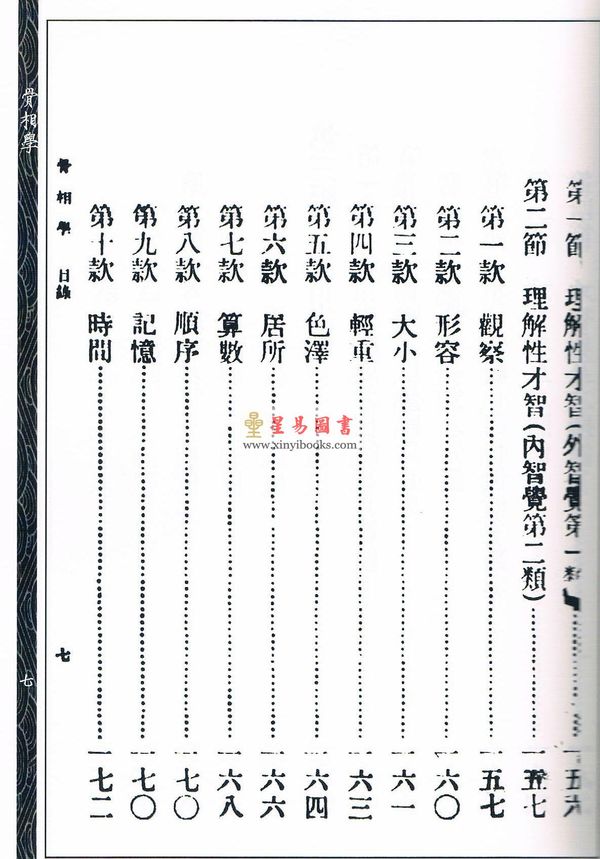 第一節 理解性才智(外智覺第一類)一五六
第二節 理解性才智(內智覺第二類)一五七
第一款 觀察一五七
第二款 形容一六〇
第三款 大小一六一
第四款 輕重一六三
第五款 色澤一六四
第六款 居所一六六
第七款 算數一六八
第八款 順序一七〇
第九款 記憶一七〇
第十款 時間一七二
骨相學 目錄 七
骨相學 七
星易圖書
www.xinyibooks.com